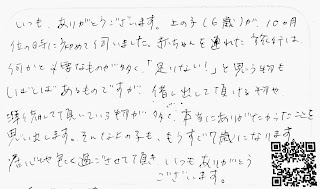 いつも、ありがとうございます。上の子(6歳)が、10ヶ月
位の時に初めて伺いました。赤ちゃんを連れた旅行は、
何かと必要なものが多く、「足りない!」と思う物も
しばしばあるものですが、借し出して頂ける物や、
準備して頂いている物が多く、本当にありがたかったことを
思い出します。そんな上の子も、もうすぐ7歳になります。
過ごさせて頂き いつもありがとう
ございます。